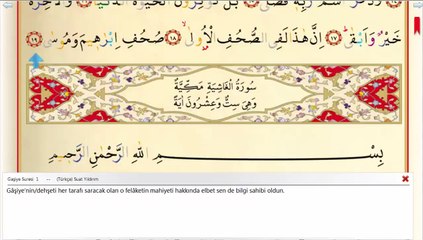 خَيْرٌ وَاَبْقٰىۜ ﴿١٧﴾ اِنَّ هٰذَا لَفِي الصُّحُفِ الْاُو۫لٰىۙ ﴿١٨﴾ صُحُفِ اِبْرٰه۪يمَ وَمُوسٰى ﴿١٩﴾
سُورَةُ الْغَاشِيَةِ مَكِّيَّةٌ
وَهِيَ سِتٌّ وَعِشْرُونَ اٰيَةً
بِسْمِ اللّٰهِ الرَّحْمٰنِ الرَّح۪يمِ
Gaşiye Suresi 1 -- (Türkçe) Suat Yıldırım
Gâşiye'nin/dehşeti her tarafı saracak olan o felâketin mahiyeti hakkında elbet sen de bilgi sahibi oldun.